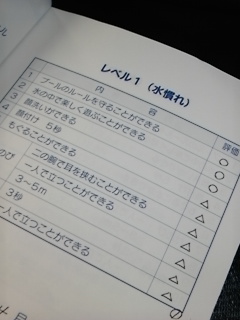 レベル1（水慣れ）
内 容 評価
1 プールのルールを守ることができる ○
2 水の中で楽しく遊ぶことができる ○
3 顔洗いができる ○
4 顔付け 5秒 △
もぐることができる △
のび 二の腕で耳を挟むことができる △
一人で立つことができる △
3～5m △
3秒 △
一人で立つことができる